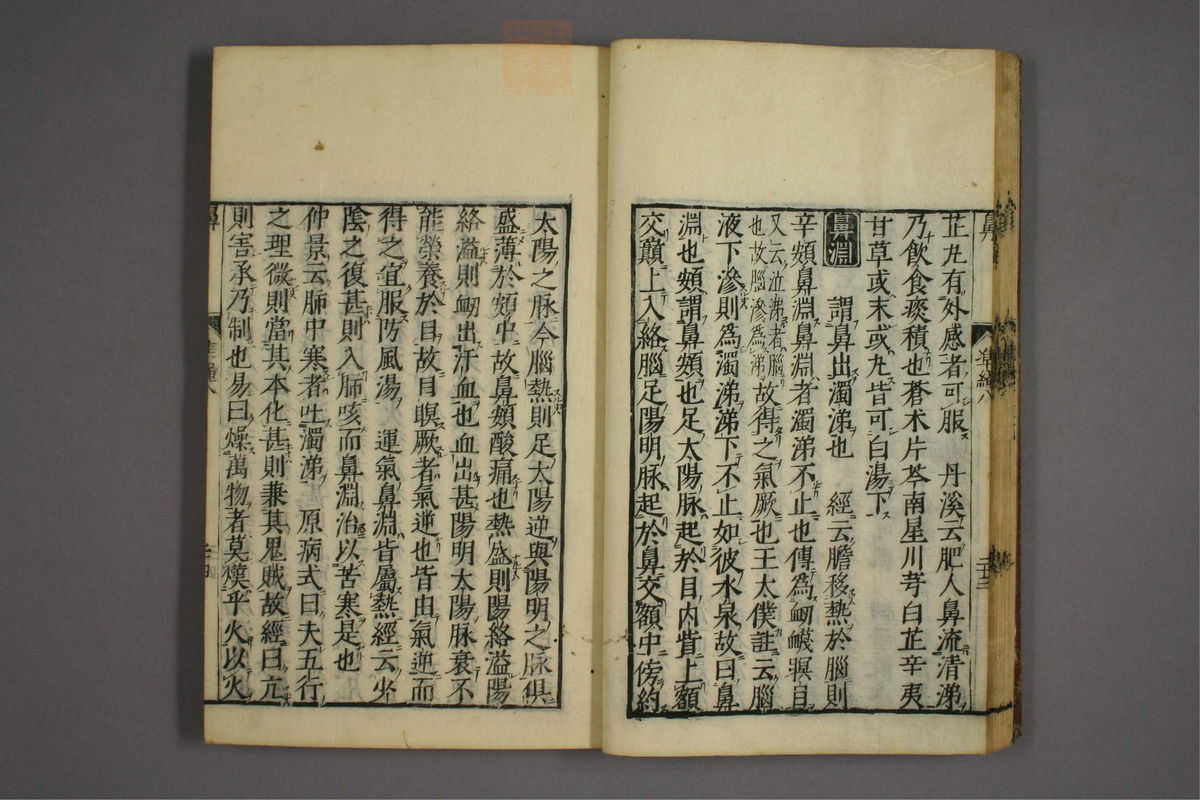 芷丸有外感者可服　丹溪云肥人鼻流清涕
乃飲食痰積也蒼朮片芩南星川芎白芷辛夷
甘草或末或丸皆可白湯下
鼻淵　謂鼻出濁涕也　經云膽移熱於腦則
辛頞鼻淵鼻淵者濁涕不止也傳為衄衊瞑目
又云泣涕者腦也故腦滲爲涕故得之氣厥也王太僕註云腦
液下滲則為濁涕涕下不止如彼水泉故曰鼻
淵也頞謂鼻頞也足太陽脉起於目內眥上額
交巔上入絡腦足陽明脉起於鼻交額中傍約
太陽之脉今腦熱則足太陽逆與陽明之脉俱
盛薄於頞中故鼻頞酸痛也熱盛則陽絡溢陽
絡溢則衄出汗血也血出甚陽明太陽脉衰不
能榮養於目故目瞑厥者氣逆也皆由氣逆而
得之宜服防風湯　運氣鼻淵皆屬熱經云少
陰之復甚則入肺咳而鼻淵治以苦寒是也
仲景云肺中寒者吐濁涕　原病式曰夫五行
之理微則當其本化甚則兼其鬼賊故經曰亢
則害承乃制也易曰燥萬物者莫熯乎火以火
鼻